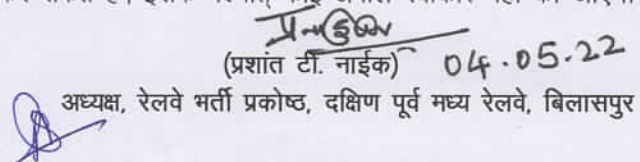 (प्रशांत टी. नाईक) 04.05.22
अध्यक्ष, रेलवे भर्ती प्रकोष्ठ, दक्षिण पूर्व मध्य रेलवे, बिलासपुर